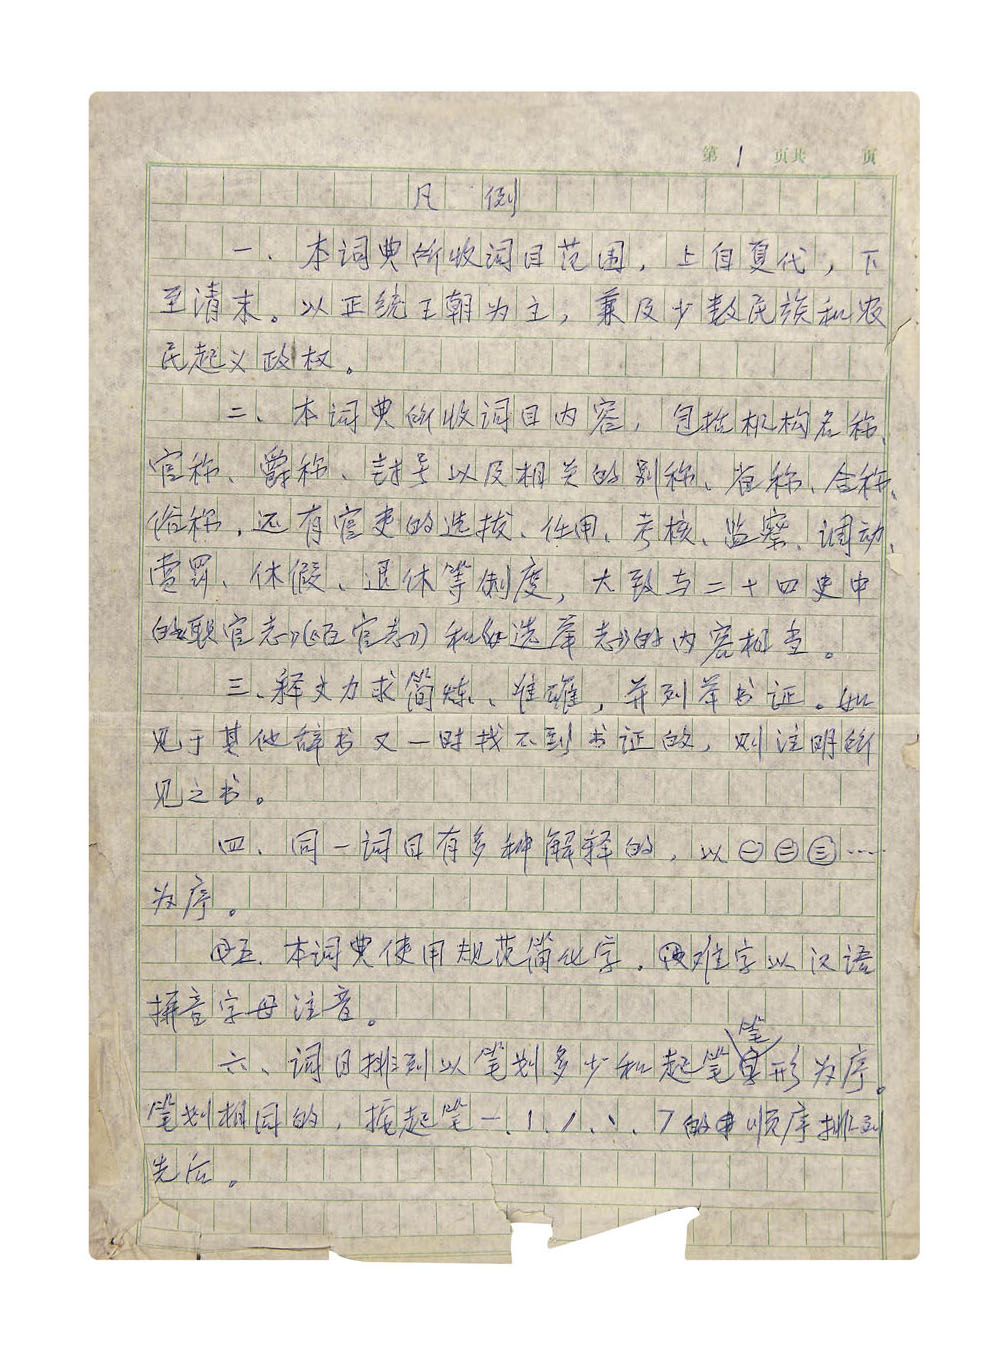 第 1 页共 页
凡 例
一、本词典所收词目范围，上自夏代，下
至清末。以正统王朝为主，兼及少数民族和农
民起义政权。
二、本词典所收词目内容，包括机构名称、
官称、爵称、封号以及相关的别称、省称、合称、
俗称，还有官吏的选拔、任用、考核、监察、调动、
赏罚、休假、退休等制度，大致与二十四史中
的《职官志》（《百官志》）和《选举志》的内容相当。
三、释文力求简炼、准确，并列举书证。如
见于其他辞书又一时找不到书证的，则注明所
见之书。
四、同一词目有多种解释的，以㊀㊁㊂……
为序。
五、本词典使用规范简化字。难字以汉语
拼音字母注音。
六、词目排列以笔划多少和起笔笔形为序。
笔划相同的，按起笔一、丨、丿、丶、乛的顺序排列
先后。